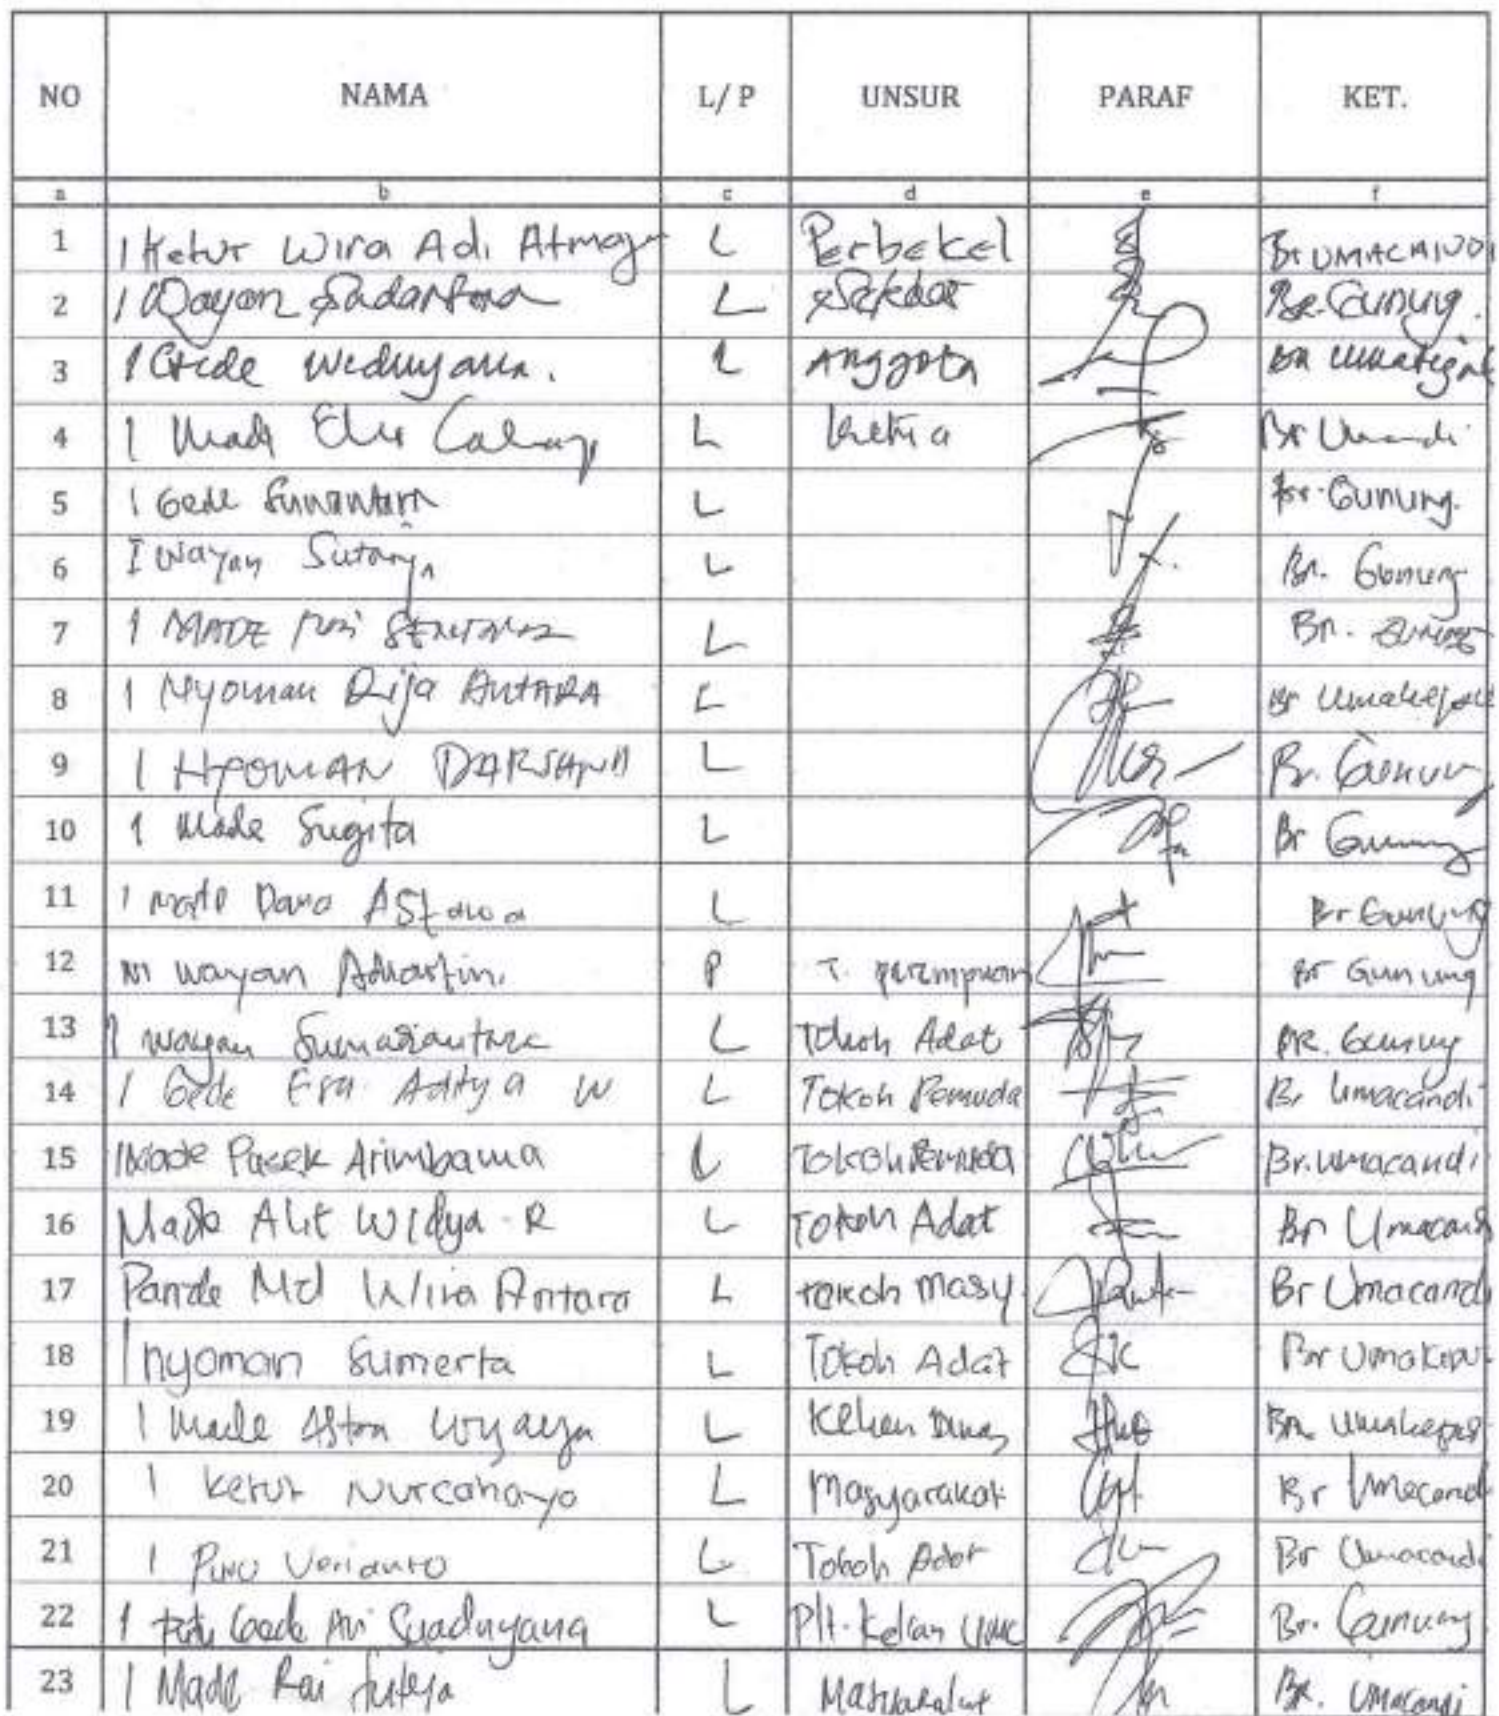 NO NAMA L/ P UNSUR PARAF KET.
a b c d e f
1 I Ketut Wira Adi Atmaja L Perbekel Br UMACANDI
2 I Wayan Sadantara L Sekdes Br. Gunung.
3 I Gede Widuyana. L Anggota
4 I Made L Ketua Br Umacandi
5 I Gede L Br. Gunung.
6 I Wayan Sutarya L Br. Gunung
7 I MADE L Br. Gunung
8 I Nyoman Rija ANTARA L Br Umakepuh
9 I NYOMAN DARSANA L Br. Gunung
10 I Made Sugita L Br Gunung
11 I Made Dana Astawa L Br Gunung
12 Ni Wayan P T. perempuan Br Gunung
13 I Wayan Sumariantara L Tokoh Adat BR. Gunung
14 I Gede Esa Aditya W L Tokoh Pemuda Br Umacandi
15 I Made Pasek Arimbawa L Tokoh Pemuda Br. Umacandi
16 Made Alit Widya R L Tokoh Adat Br Umacandi
17 Pande Md Wira Antara L tokoh masy Br Umacandi
18 I nyoman Sumerta L Tokoh Adat Br Umakepuh
19 I Made Astra Wijaya L Kelian Dinas Br. Umakepuh
20 I Ketut Nurcahaya L Masyarakat Br Umacandi
21 I L Tokoh Adat Br Umacandi
22 I Putu Gede Ari Suaduyana L Plt. Kelian Br. Gunung
23 I Made Rai Suteja L Masyarakat BR. Umacandi